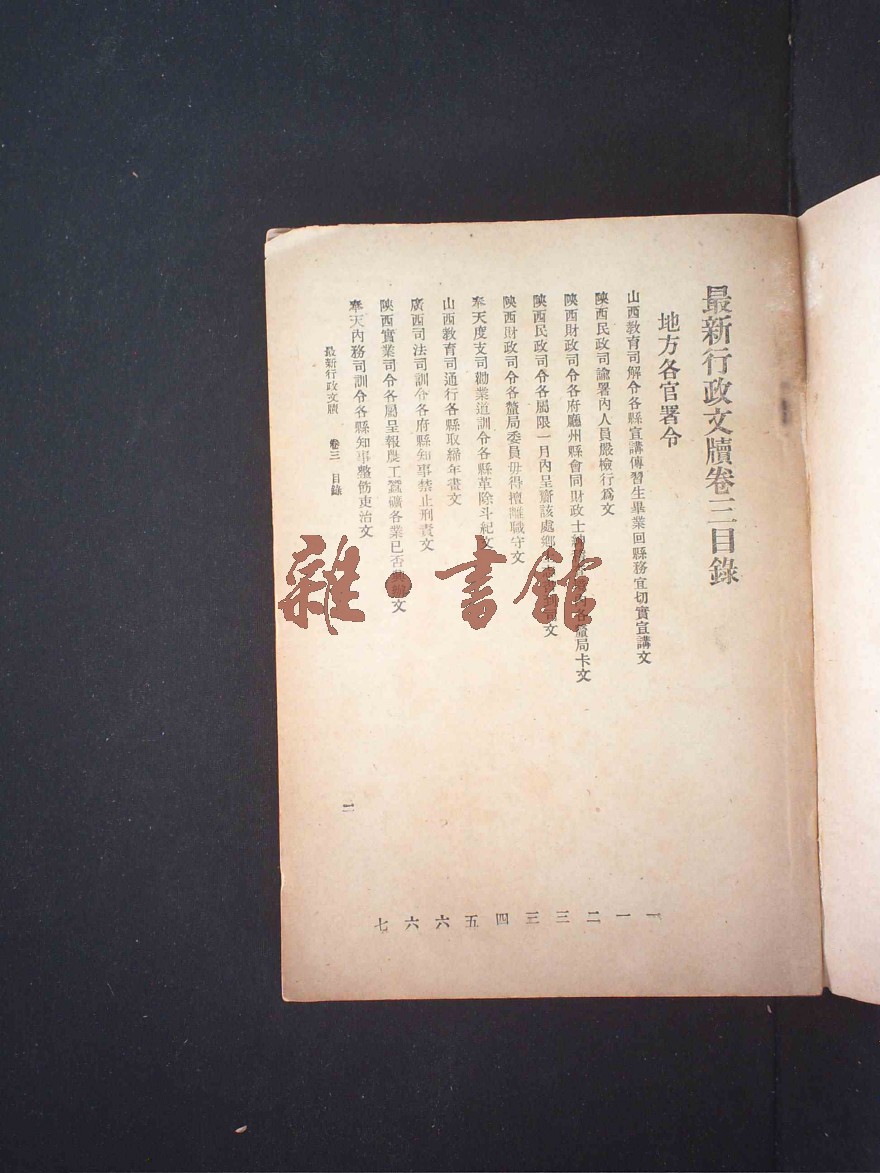 最新行政文牘卷三目錄
地方各官署令
山西教育司解令各縣宣講傳習生畢業回縣務宜切實宣講文 一
陝西民政司諭署內人員嚴檢行爲文 一
陝西財政司令各府廳州縣會同財政士紳 各釐局卡文 二
陝西民政司令各屬限一月內呈齎該處鄉 文 三
陝西財政司令各釐局委員毋得擅離職守文 三
奉天度支司勸業道訓令各縣革除斗紀文 四
山西教育司通行各縣取締年畫文 五
廣西司法司訓令各府縣知事禁止刑責文 六
陝西實業司令各屬呈報農工蠶礦各業已否 文 六
奉天內務司訓令各縣知事整飭吏治文 七
最新行政文牘 卷三 目錄
二
雜·書館